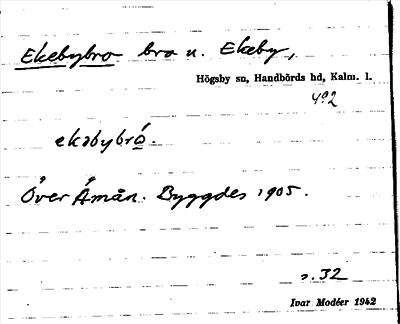 Ekebybro bro n. Ekeby,
Högsby sn, Handbörds hd, Kalm. l.
402
ekəbybró.
Över Åmån. Byggdes 1905.
s. 32
Ivar Modéer 1942